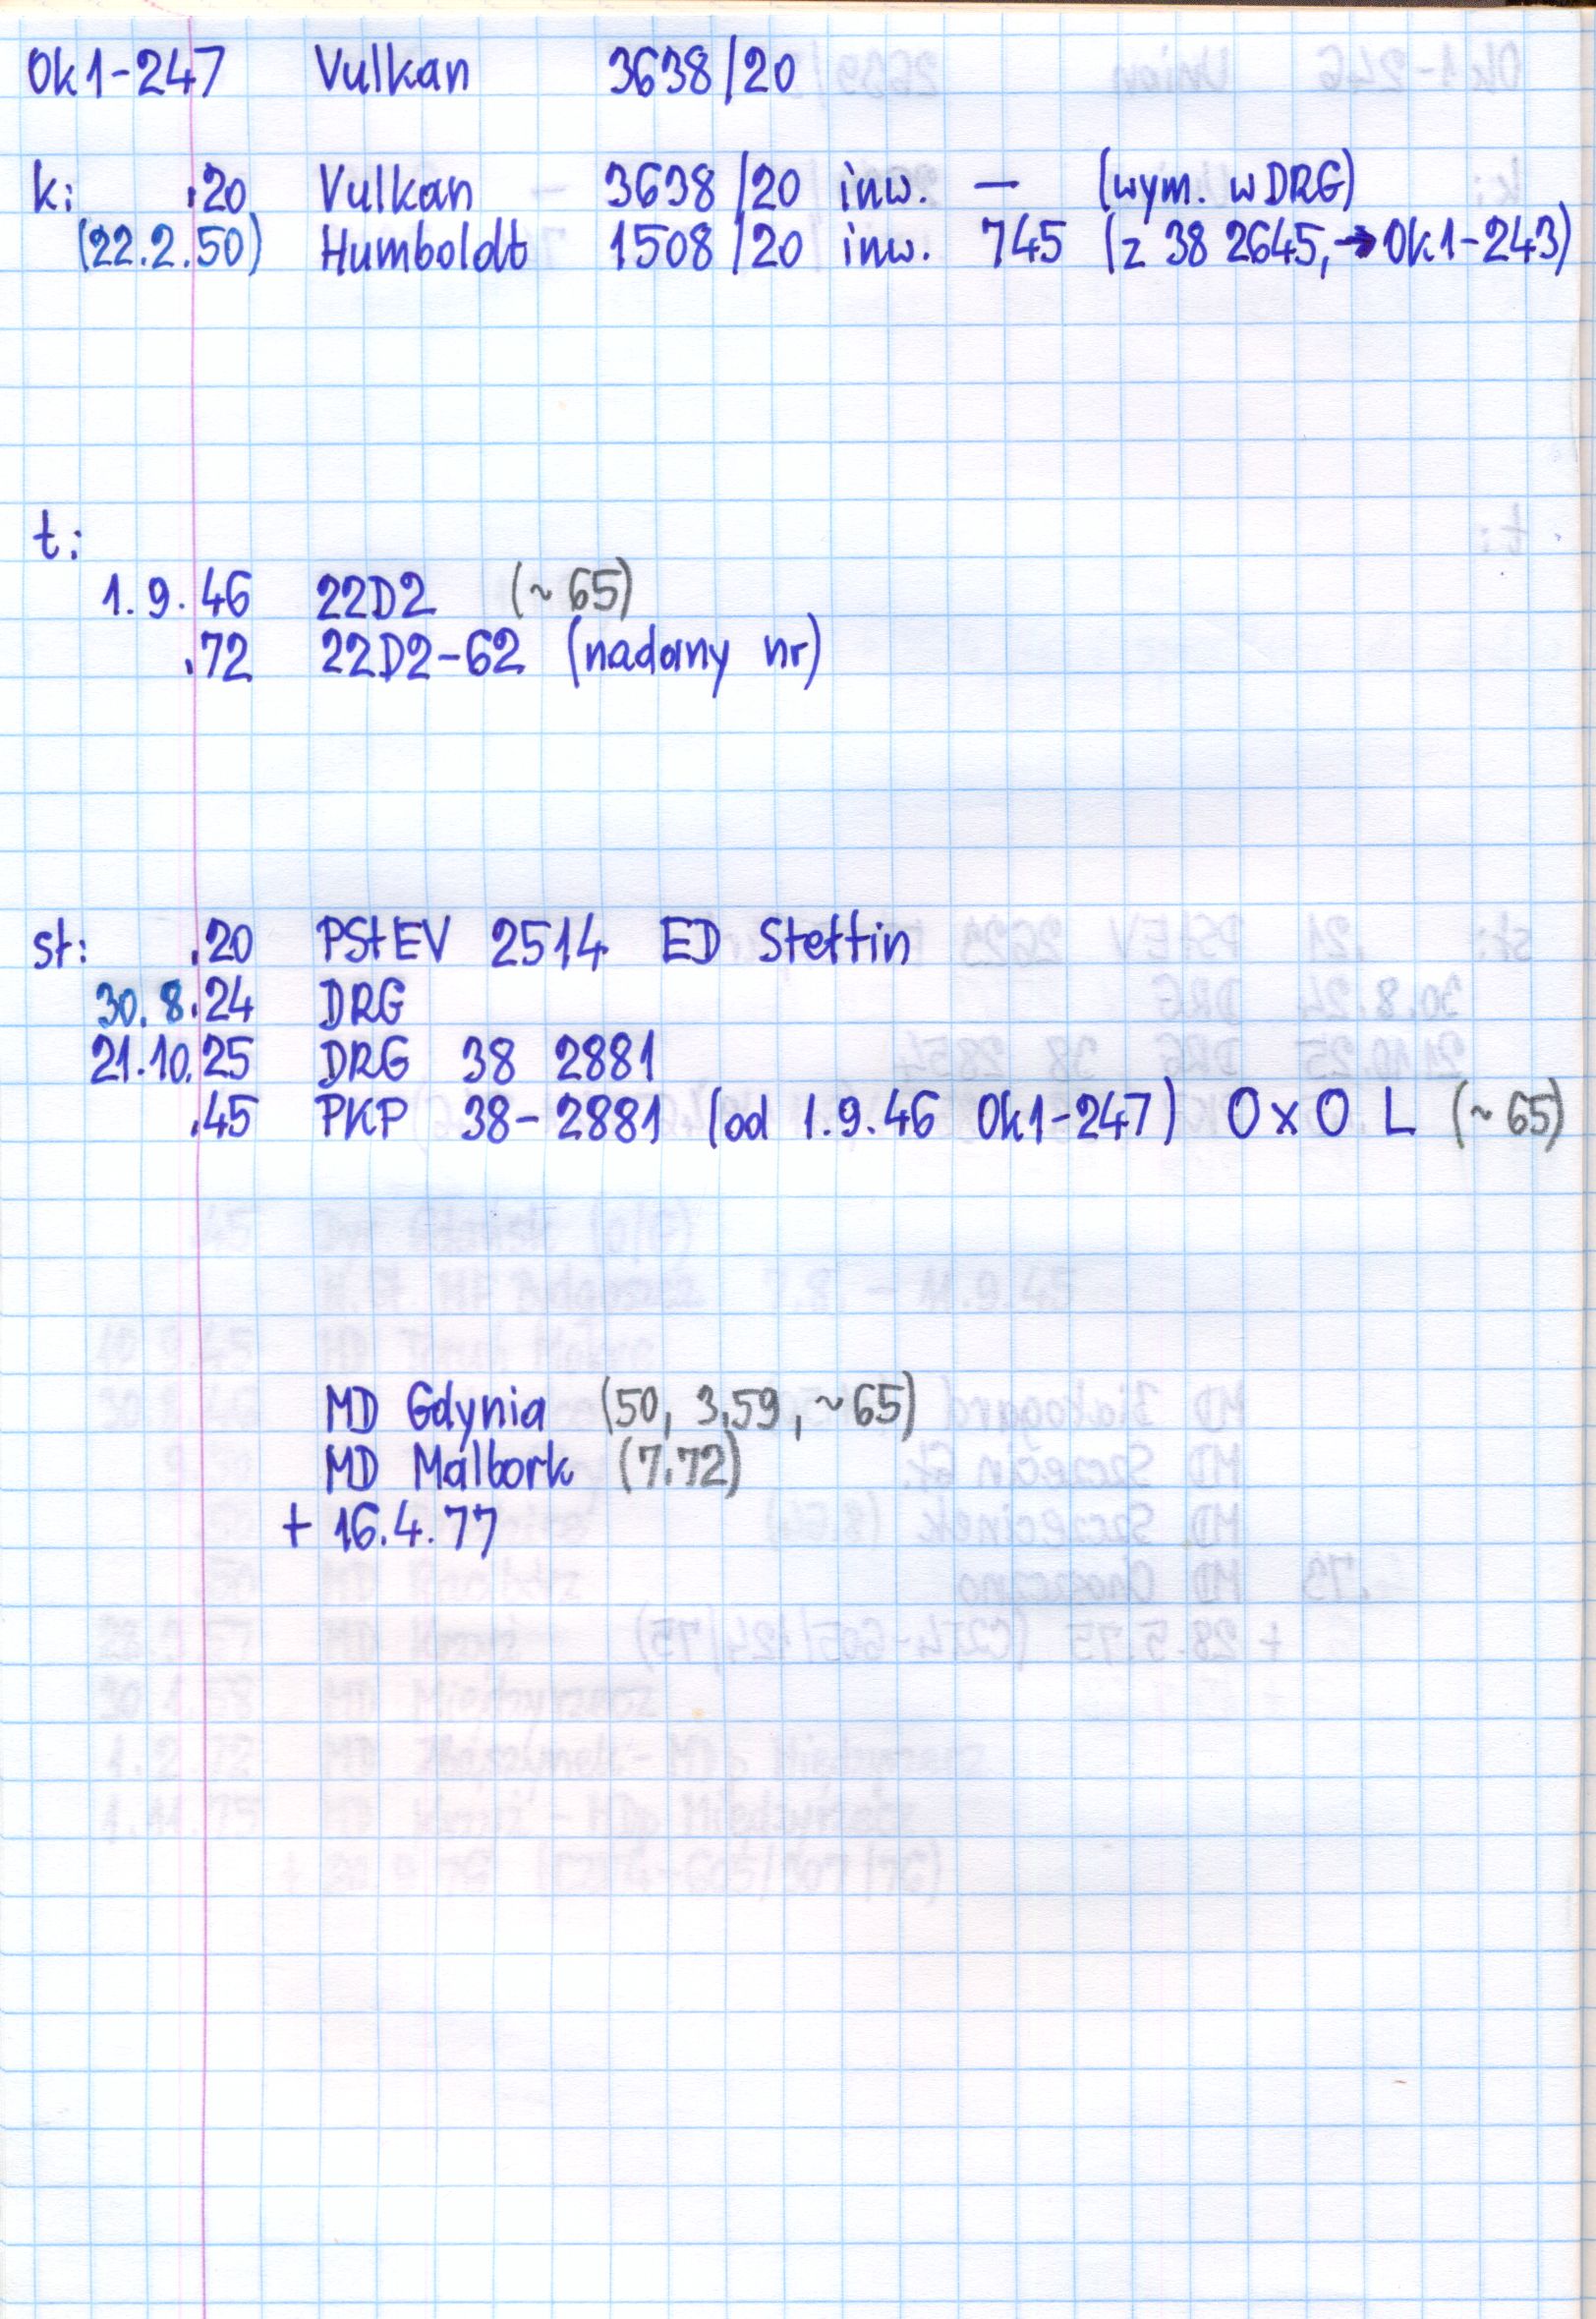 Ok1-247 Vulkan 3638/20
k: .20 Vulkan 3638/20 inw. — (wym. w DRG)
(22.2.50) Humboldt 1508/20 inw. 745 (z 38 2645, → Ok1-243)
t:
1.9.46 22D2 (~65)
.72 22D2-62 (nadany nr)
st: .20 PStEV 2514 ED Stettin
30.8.24 DRG
21.10.25 DRG 38 2881
.45 PKP 38-2881 (od 1.9.46 Ok1-247) OxO L (~65)
MD Gdynia (50, 3.59, ~65)
MD Malbork (7.72)
+ 16.4.77